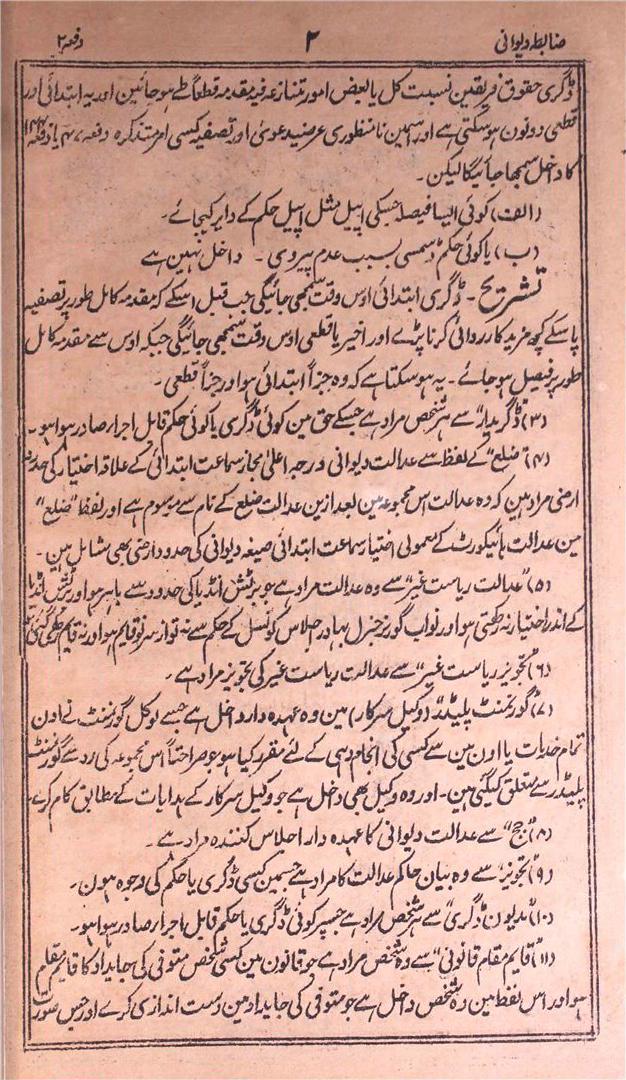 ضابطہ دیوانی ۲ دفعہ ۲
ڈگری حقوق فریقین نسبت کل یا بعض امور متنازعہ فیہ مقدمہ قطعاً طے ہو جائین اور یہ ابتدائی اور
قطعی دونون ہو سکتی ہے اور اسمین نامنظوری عرضیدعوی اور تصفیہ کسی امر متذکرہ دفعہ ۴۷ یا دفعہ ۱۴۴
کا داخل سمجھا جائیگا لیکن۔
(الف) کوئی ایسا فیصلہ جسکی اپیل مثل اپیل حکم کے دایر کیجائے۔
(ب) یا کوئی حکم ڈسمسی بسبب عدم پیروی۔ داخل نہین ہے
تشریح۔ ڈگری ابتدائی اوس وقت سمجھی جائیگی جب قبل اسکے کہ مقدمہ کامل طور پر تصفیہ
پاسکے کچھ مزید کارروائی کرنا پڑے اور اخیر یا قطعی اوس وقت سمجھی جائیگی جبکہ اوس سے مقدمہ کامل
طور پر فیصل ہو جائے۔ یہ ہو سکتا ہے کہ وہ جزاً ابتدائی ہو اور جزاً قطعی۔
(۳) "ڈگریدار" سے ہر شخص مراد ہے جسکے حق مین کوئی ڈگری یا کوئی حکم قابل اجرا صادر ہوا ہو۔
(۴) "ضلع" کے لفظ سے عدالت دیوانی درجہ اعلیٰ مجاز سماعت ابتدائی کے علاقہ اختیار کی حدود
ارضی مراد ہین کہ وہ عدالت اس مجموعہ مین بعد ازین عدالت ضلع کے نام سے موسوم ہے اور لفظ "ضلع"
مین عدالت ہائیکورٹ کے معمولی اختیار سماعت ابتدائی صیغہ دیوانی کی حدود ارضی بھی شامل ہین۔
(۵) "عدالت ریاست غیر" سے وہ عدالت مراد ہے جو برٹش انڈیا کی حدود سے باہر ہو اور برٹش انڈیا
کے اندر اختیار نہ رکھتی ہو اور نواب گورنر جنرل بہادر اجلاس کونسل کے حکم سے نہ تو از سر نو قایم ہو اور نہ قایم رکھی گئی ہو
(۶) "تجویز ریاست غیر" سے عدالت ریاست غیر کی تجویز مراد ہے۔
(۷) "گورنمنٹ پلیڈر" (وکیل سرکار) مین وہ عہدہ دار داخل ہے جسے لوکل گورنمنٹ نے اون
تمام خدمات یا اون مین سے کسی کی انجام دہی کے لئے مقرر کیا ہو جو صراحتاً اس مجموعہ کی رو سے گورنمنٹ
پلیڈر سے متعلق کیگئی ہین۔ اور وہ وکیل بھی داخل ہے جو وکیل سرکار کے ہدایات کے مطابق کام کرے۔
(۸) "جج" سے عدالت دیوانی کا عہدہ دار اجلاس کنندہ مراد ہے۔
(۹) "تجویز" سے وہ بیان حاکم عدالت کا مراد ہے جسمین کسی ڈگری یا حکم کی وجوہ ہون۔
(۱۰) "مدیون ڈگری" سے ہر شخص مراد ہے جسپر کوئی ڈگری یا حکم قابل اجرا صادر ہوا ہو۔
(۱۱) "قایم مقام قانونی" سے وہ شخص مراد ہے جو قانون مین کسی شخص متوفی کی جایداد کا قایم مقام
ہو اور اس لفظ مین وہ شخص داخل ہے جو متوفی کی جایداد مین دست اندازی کرے اور جس صورت